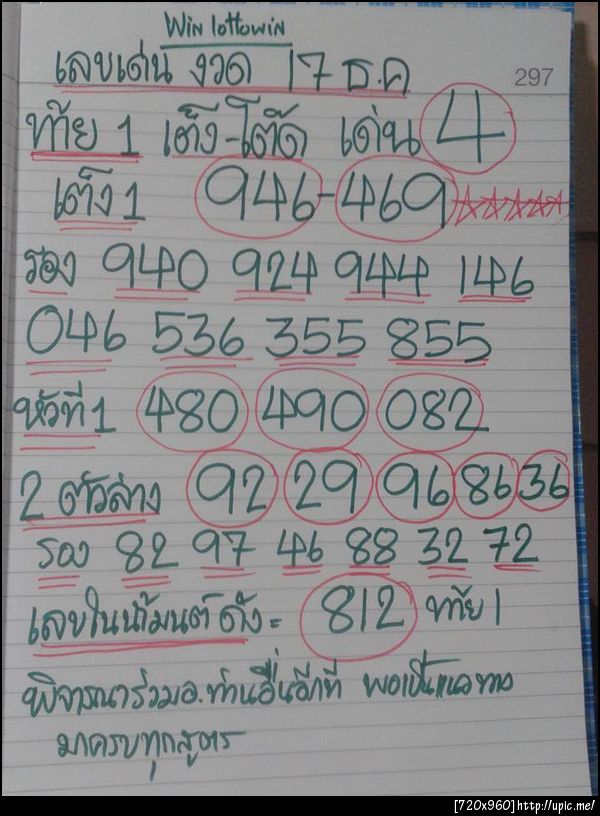 Win lottowin
เลขเด่น งวด 17 ธ.ค
297
ท้าย 1 เต็ง-โต๊ด เด่น 4
เต็ง 1 946-469
รอง 940 924 944 146
046 536 355 855
หัวที่ 1 480 490 082
2 ตัวล่าง 92 29 96 86 36
รอง 82 97 46 88 32 72
เลขในน้ำมนต์ดัง = 812 ท้าย 1
พิจารณาร่วมอ.ท่านอื่นอีกที พอเป็นแนวทาง
มาครบทุกสูตร
[720x960]http://upic.me/